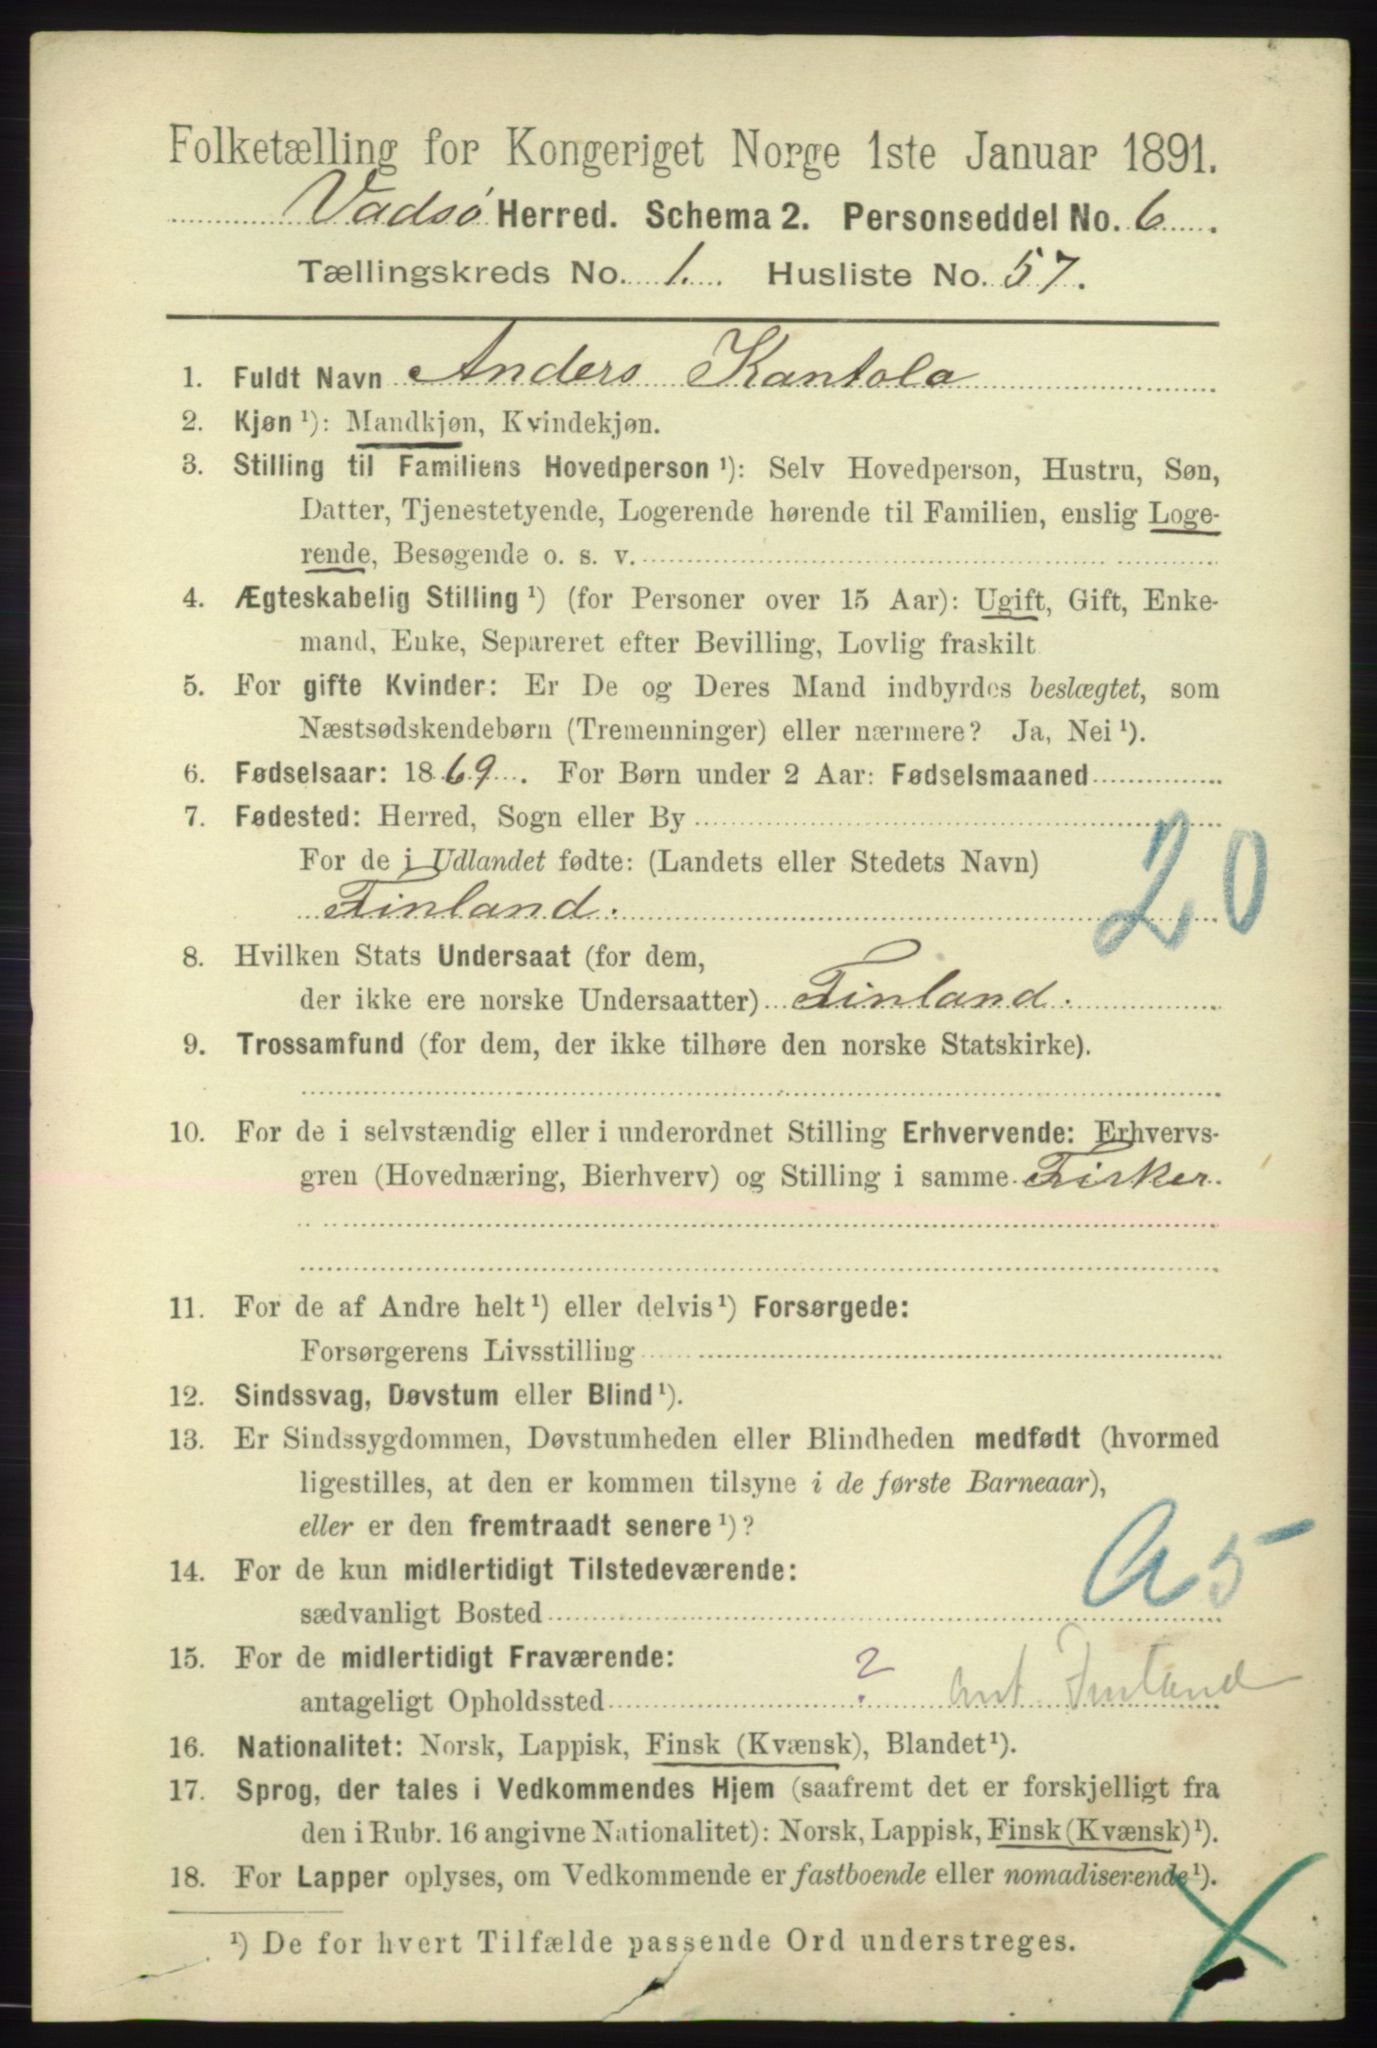 Folketælling for Kongeriget Norge 1ste Januar 1891.
Vadsø Herred. Schema 2. Personseddel No. 6.
Tællingskreds No. 1. Husliste No. 57.
1. Fuldt Navn Anders Kantola
2. Kjøn ¹): Mandkjøn, Kvindekjøn.
3. Stilling til Familiens Hovedperson ¹): Selv Hovedperson, Hustru, Søn,
Datter, Tjenestetyende, Logerende hørende til Familien, enslig Loge-
rende, Besøgende o. s. v.
4. Ægteskabelig Stilling ¹) (for Personer over 15 Aar): Ugift, Gift, Enke-
mand, Enke, Separeret efter Bevilling, Lovlig fraskilt
5. For gifte Kvinder: Er De og Deres Mand indbyrdes beslægtet, som
Næstsødskendebørn (Tremenninger) eller nærmere? Ja, Nei ¹).
6. Fødselsaar: 1869. For Børn under 2 Aar: Fødselsmaaned
7. Fødested: Herred, Sogn eller By
For de i Udlandet fødte: (Landets eller Stedets Navn)
Finland.
20
8. Hvilken Stats Undersaat (for dem,
der ikke ere norske Undersaatter) Finland.
9. Trossamfund (for dem, der ikke tilhøre den norske Statskirke).
10. For de i selvstændig eller i underordnet Stilling Erhvervende: Erhvervs-
gren (Hovednæring, Bierhverv) og Stilling i samme Fisker.
11. For de af Andre helt ¹) eller delvis ¹) Forsørgede:
Forsørgerens Livsstilling
12. Sindssvag, Døvstum eller Blind ¹).
13. Er Sindssygdommen, Døvstumheden eller Blindheden medfødt (hvormed
ligestilles, at den er kommen tilsyne i de første Barneaar),
eller er den fremtraadt senere ¹)?
14. For de kun midlertidigt Tilstedeværende:
sædvanligt Bosted
a 5
15. For de midlertidigt Fraværende:
antageligt Opholdssted ? ant. Finland
16. Nationalitet: Norsk, Lappisk, Finsk (Kvænsk), Blandet ¹).
17. Sprog, der tales i Vedkommendes Hjem (saafremt det er forskjelligt fra
den i Rubr. 16 angivne Nationalitet): Norsk, Lappisk, Finsk (Kvænsk) ¹).
18. For Lapper oplyses, om Vedkommende er fastboende eller nomadiserende ¹).
¹) De for hvert Tilfælde passende Ord understreges.